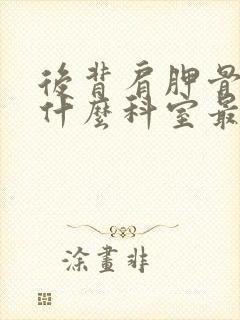 後背肩胛骨
什麼科室最
涂畫非